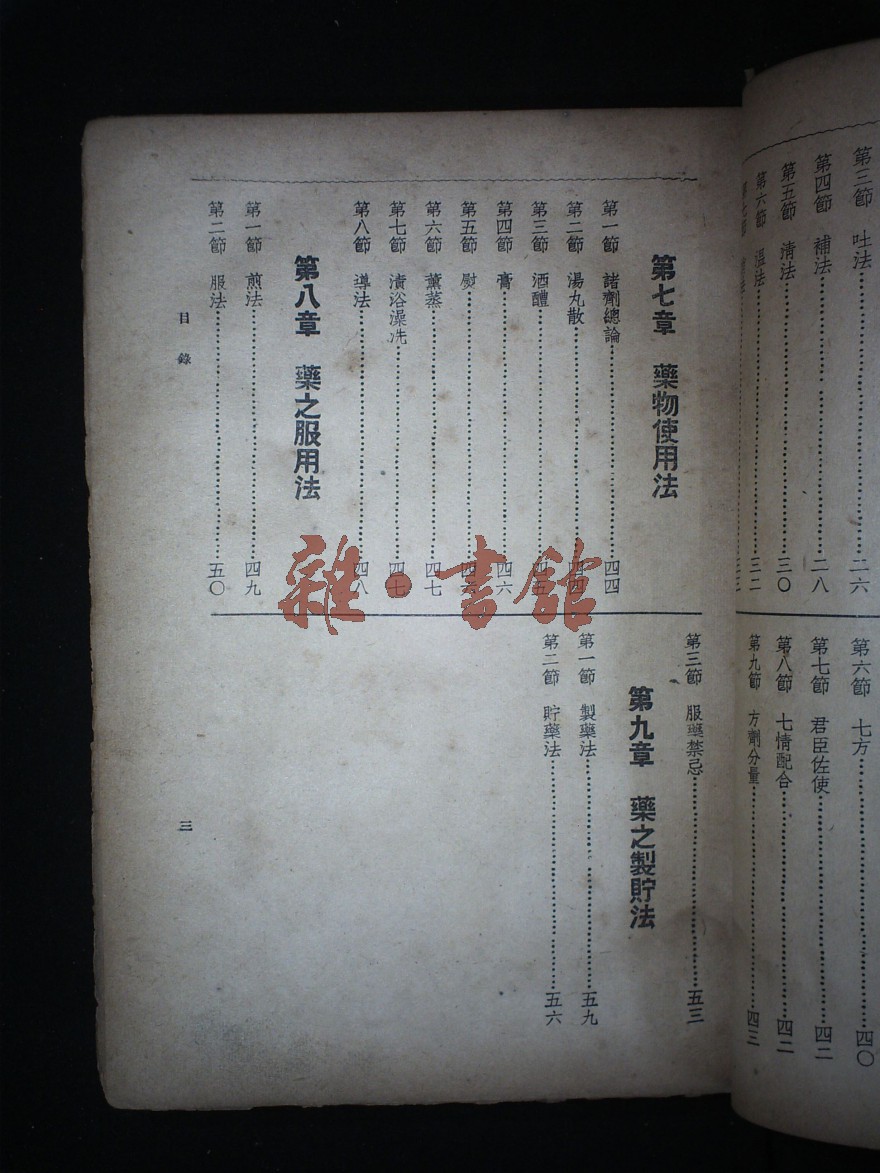 第三節 吐法 二六
第四節 補法 二八
第五節 清法 三〇
第六節 溫法 三二
第六節 七方 四〇
第七節 君臣佐使 四二
第八節 七情配合 四二
第九節 方劑分量 四三
第七章 藥物使用法
第一節 諸劑總論 四四
第二節 湯丸散 四四
第三節 酒醴 四五
第四節 膏 四六
第五節 熨
第六節 薰蒸 四七
第七節 漬浴澡洗 四七
第八節 導法 四八
第八章 藥之服用法
第一節 煎法 四九
第二節 服法 五〇
第三節 服藥禁忌 五三
第九章 藥之製貯法
第一節 製藥法 五九
第二節 貯藥法 五六
目錄
三
雜·書館